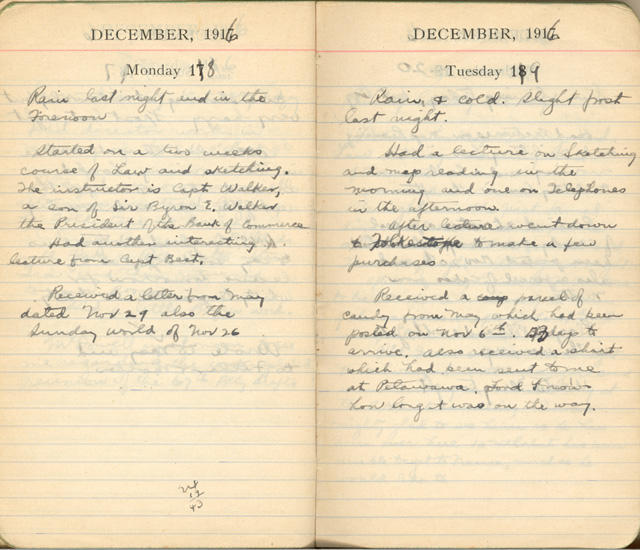 DECEMBER, 1916
Monday 18
Rain last night and in the
Forenoon
Started on a two weeks
course of Law and sketching.
The instructor is Capt Walker,
a son of Sir Byron E. Walker
the President of the Bank of Commerce
Had another interesting
lecture from Capt Best.
Received a letter from May
dated Nov 29 also the
Sunday World of Nov 26
28
12
40
DECEMBER, 1916
Tuesday 19
Rain, & cold. Slight frost
last night.
Had a lecture on Sketching
and map reading in the
morning and one on Telephones
in the afternoon.
After lecture went down
to Folkestone to make a few
purchases
Received a parcel of
candy from May which had been
posted on Nov 6th. days to
arrive. Also received a shirt
which had been sent to me
at Petawawa. Lord knows
how long it was on the way.